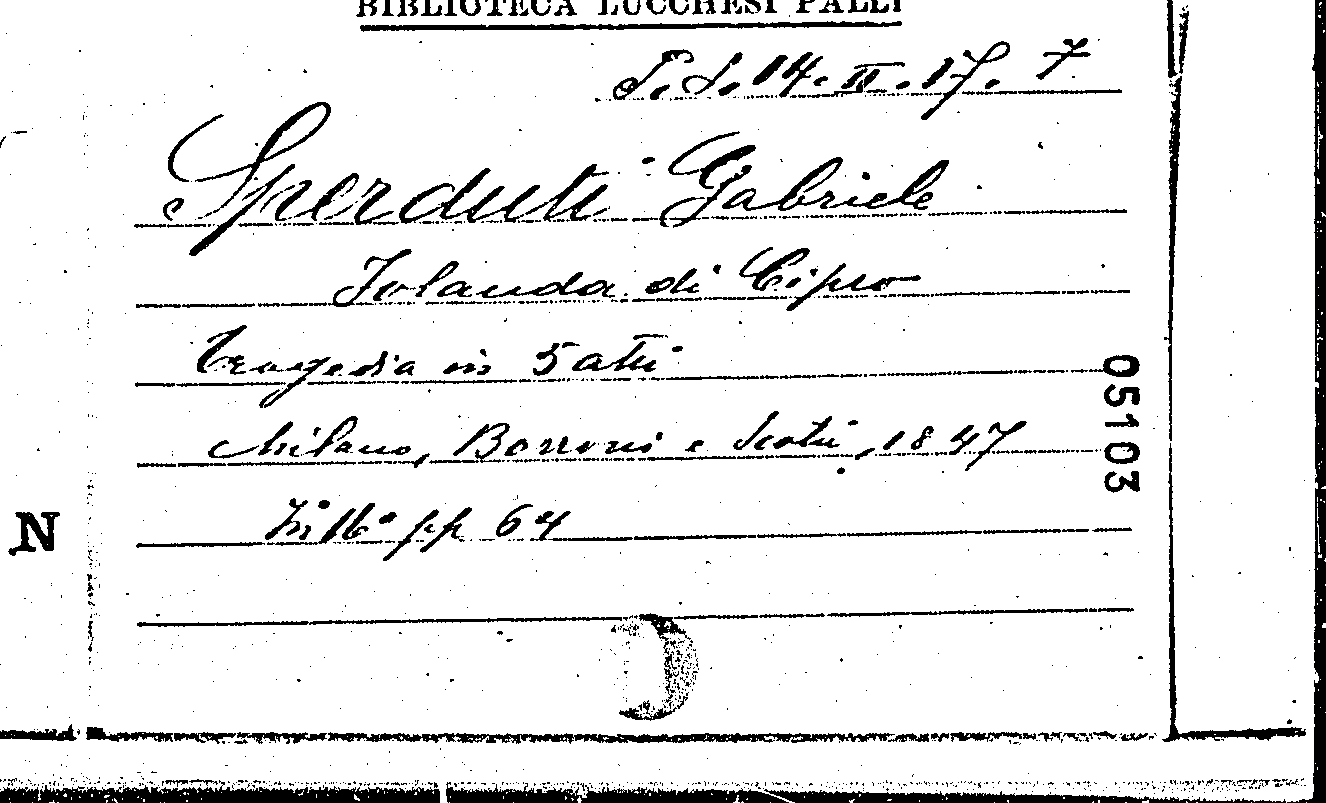 BIBLIOTECA LUCCHESI PALLI
S. S. 14. II. 17. 7
Sperduti Gabriele
Iolanda di Cipro
tragedia in 5 atti
Milano, Borroni e Scotti, 1847
In 16° pp 64
05103
N